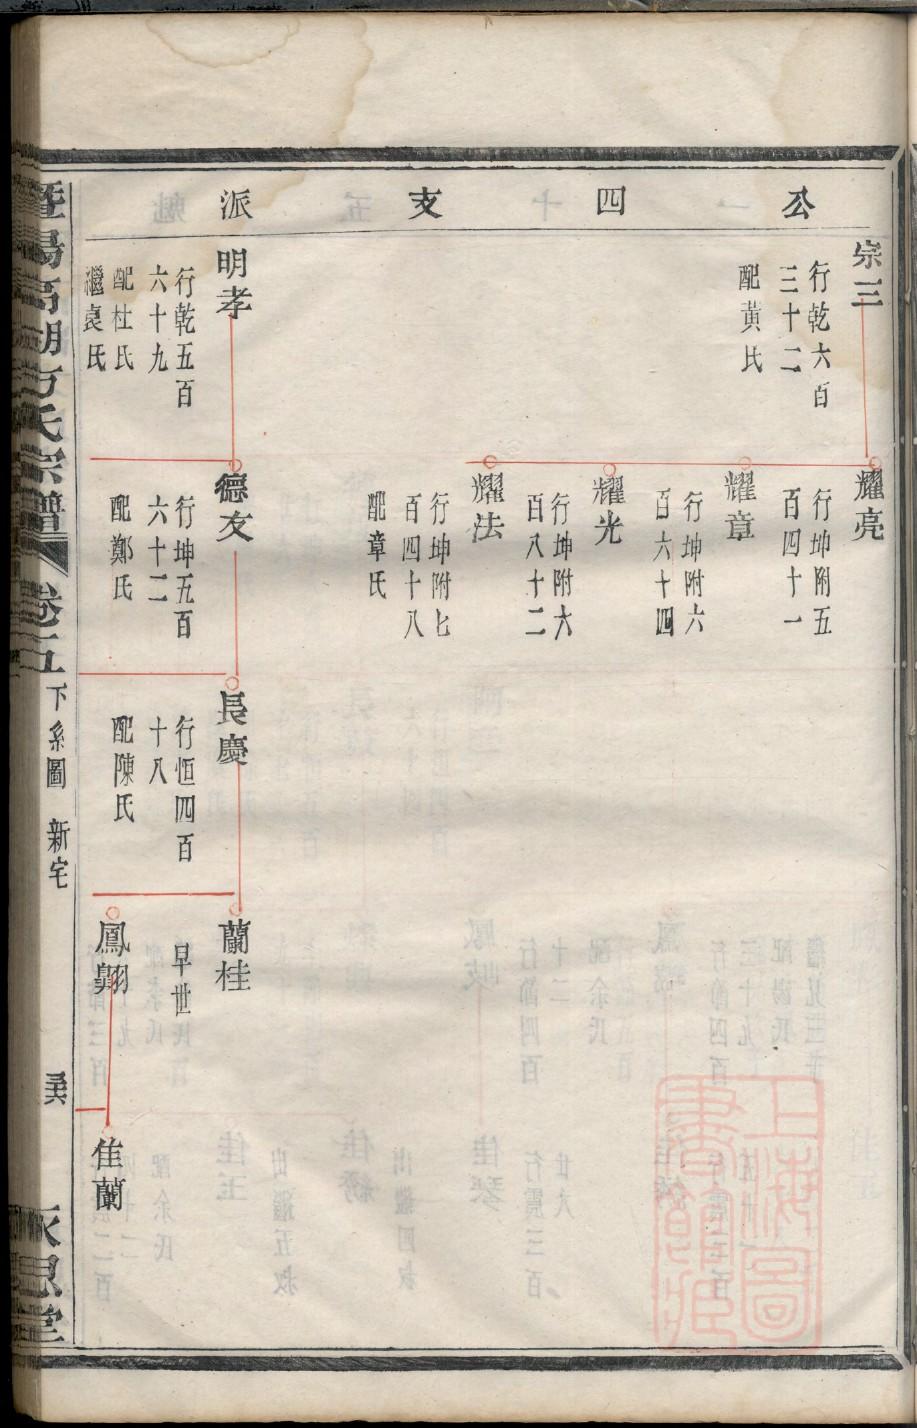 公四支派
宗三
行乾六百
三十二
配黃氏
明孝
行乾五百
六十九
配杜氏
繼袁氏
耀亮
行坤附五
百四十一
耀章
行坤附六
百六十四
耀光
行坤附六
百八十二
耀法
行坤附七
百四十八
配章氏
德友
行坤五百
六十二
配鄭氏
長慶
行恒四百
十八
配陳氏
蘭桂
早世
鳳翺
佳蘭
暨陽高湖方氏宗譜
卷五
下系圖 新宅
上海圖書館藏